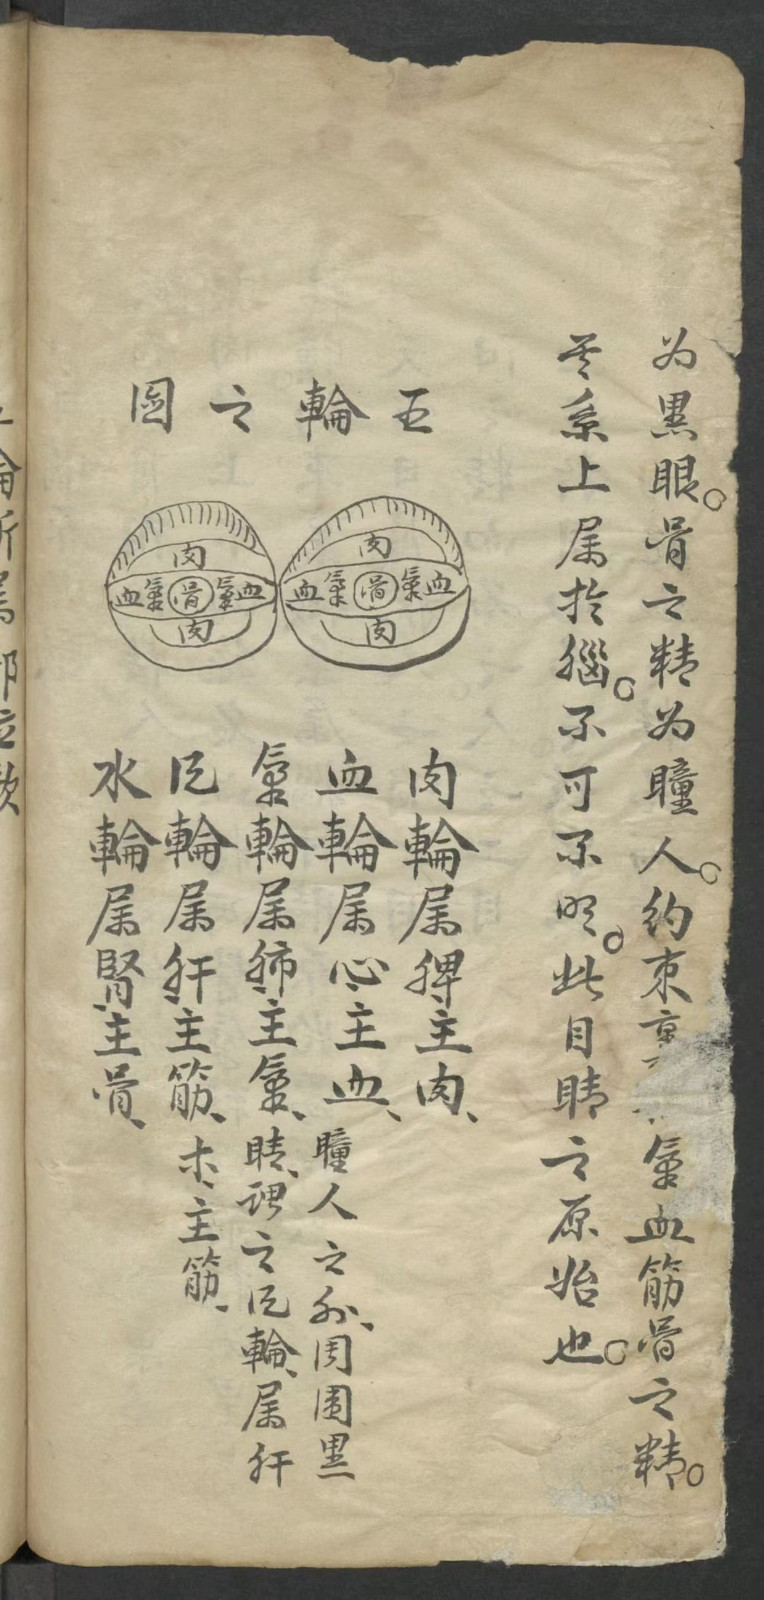 为黑眼。骨之精为瞳人。約束裏氣血筋骨之精。
其系上属於腦。不可不明。此目睛之原始也。
五輪之圖
肉
血氣骨氣血
肉
肉
血氣骨氣血
肉
肉輪属脾、主肉、
血輪属心、主血、
氣輪属肺、主氣、
瞳人之外、周围黑
睛、謂之風輪、属肝
風輪属肝、主筋、木主筋、
水輪属腎、主骨、
輪所属部位歌